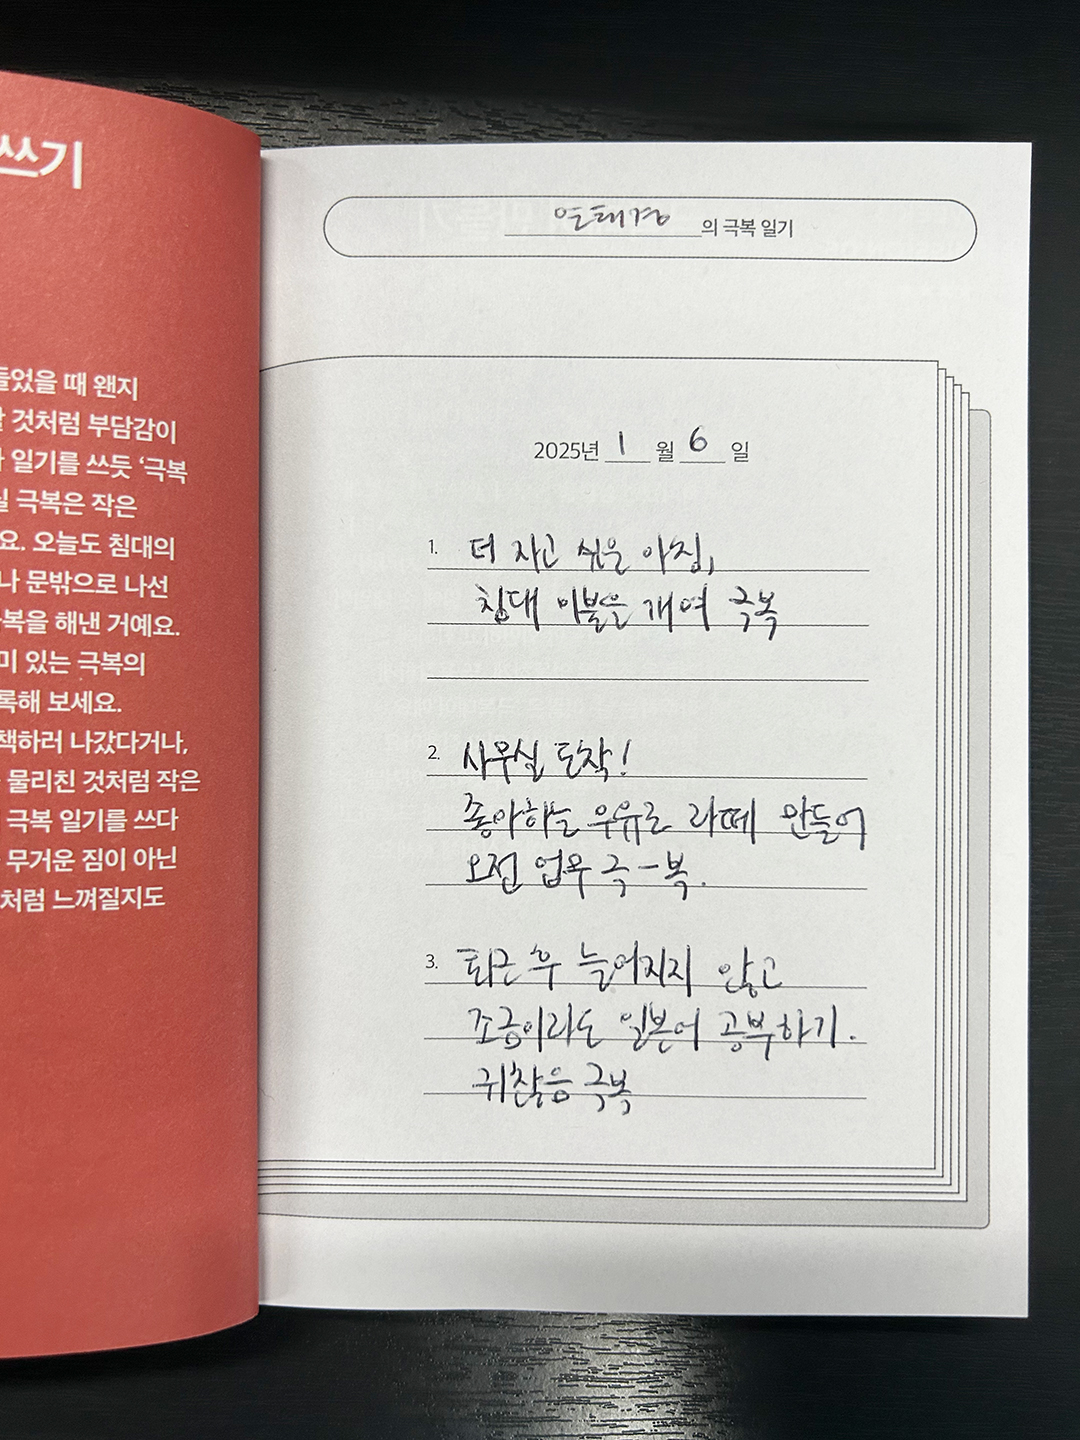 쓰기
들었을 때 왠지
것처럼 부담감이
일기를 쓰듯 ‘극복
극복은 작은
요. 오늘도 침대의
나 문밖으로 나선
복을 해낸 거예요.
미 있는 극복의
록해 보세요.
책하러 나갔다거나,
물리친 것처럼 작은
극복 일기를 쓰다
무거운 짐이 아닌
처럼 느껴질지도
연태경의 극복 일기
2025년 1 월 6 일
1. 더 자고 싶은 아침,
침대 이불을 개여 극복
2. 사무실 도착!
좋아하는 우유로 라떼 만들어
오전 업무 극-복.
3. 퇴근 후 늘어지지 않고
조금이라도 일본어 공부하기.
귀찮음 극복